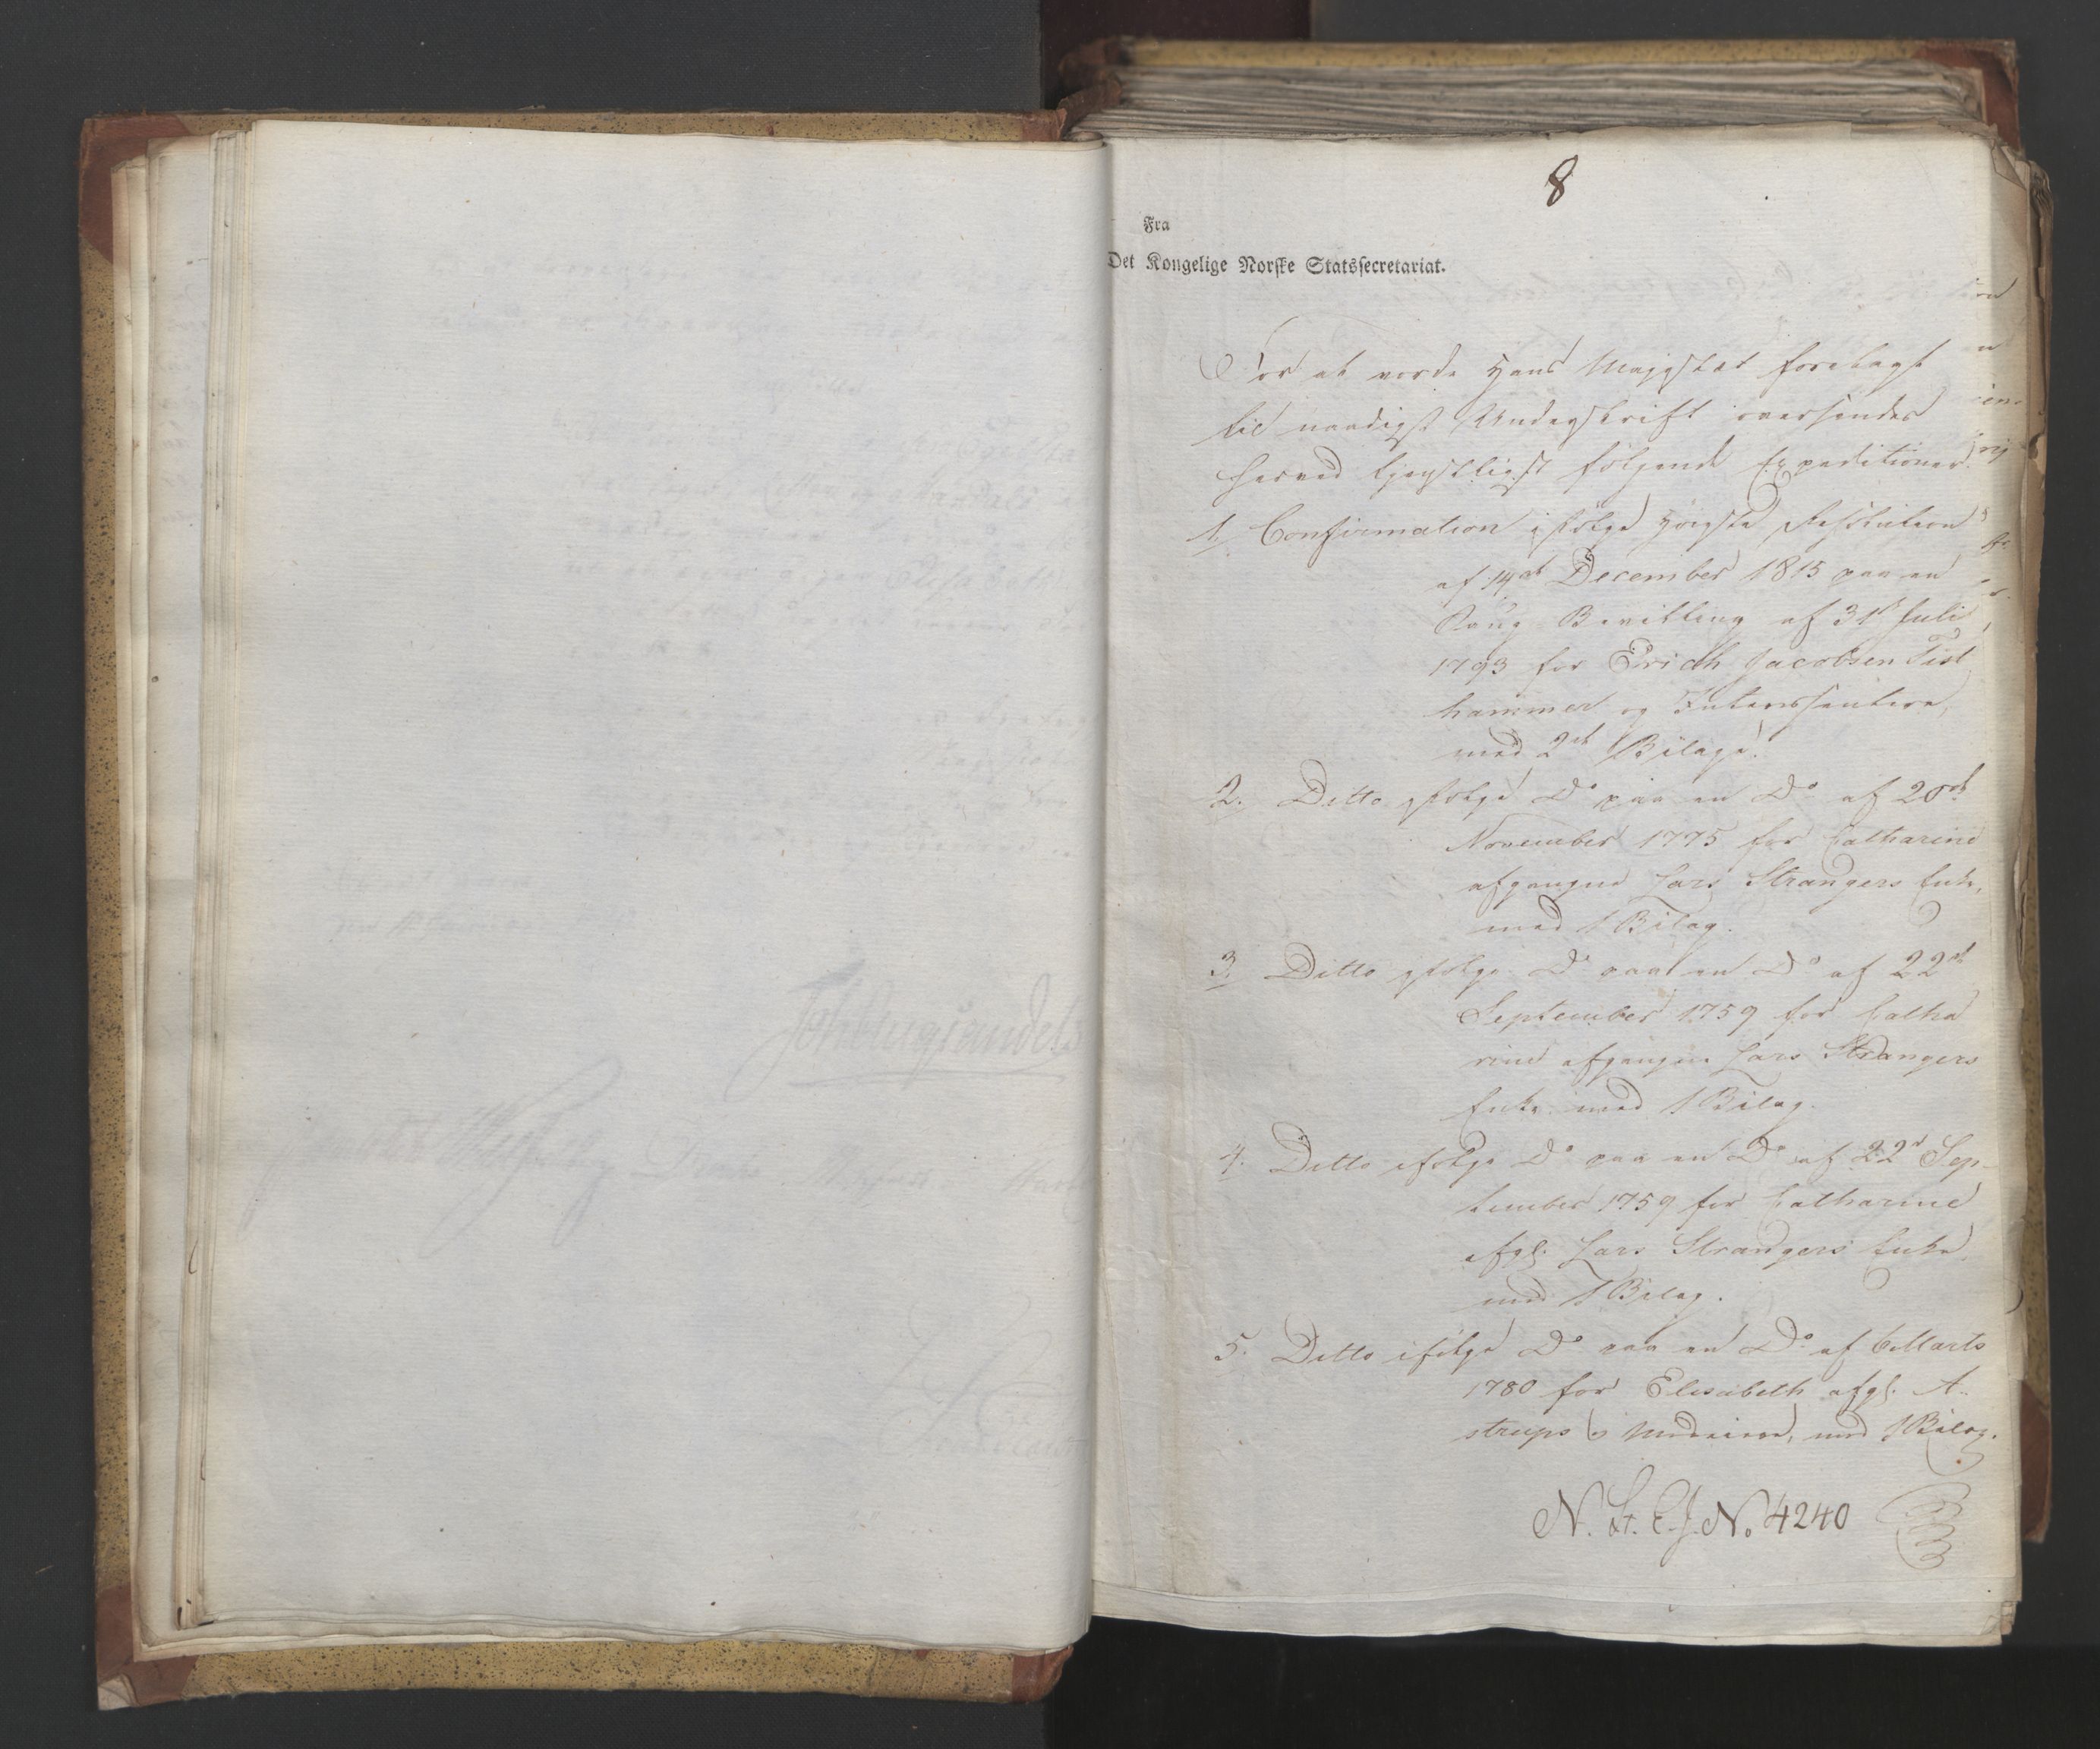 8
Fra
Det Kongelige Norske Statssecretariat.
For at vorde Hans Majestæt forelagt
til naadigst Underskrift oversendes
herved tjenstligst følgende Expeditioner:
1. Confirmation ifølge høieste Resolution
af 14de December 1815 paa en
Saug Bevilling af 31te Juli
1793 for Erich Jacobsen Tist
hammer og Interessentere,
med 2de Bilage.
2. Ditto ifølge Do paa en Do af 20de
November 1775 for Catharine
afgangne Lars Strangers Enke,
med 1 Bilag.
3. Ditto ifølge Do paa en Do af 22de
September 1759 for Catha
rine afgangne Lars Strangers
Enke med 1 Bilag.
4. Ditto ifølge Do paa en Do af 22d Sep-
tember 1759 for Catharine
afgl. Lars Strangers Enke
med 1 Bilag.
5. Ditto ifølge Do paa en Do af 6 Marts
1780 for Elisabeth afgl. A-
strups og Medeiere, med 1 Bilag.
N. St. E. J. No. 4240